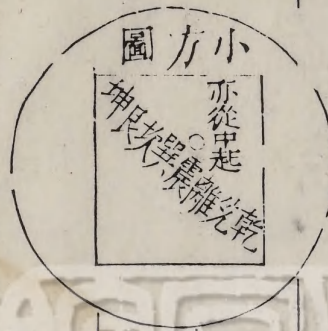 小方圖
亦從中起
乾兌離震巽坎艮坤